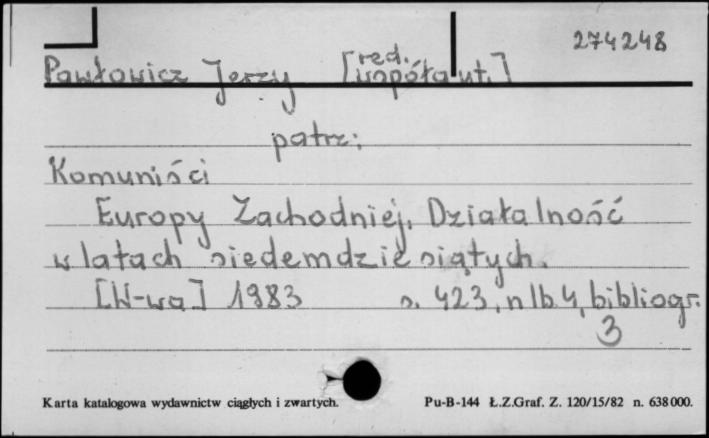 274248
Pawłowicz Jerzy [red. współaut.]
patrz:
Komuniści
Europy Zachodniej. Działalność
w latach siedemdziesiątych.
[W-wa] 1983 s. 423, nlb. 4, bibliogr.
3
Karta katalogowa wydawnictw ciągłych i zwartych. Pu-B-144 Ł.Z.Graf. Z. 120/15/82 n. 638000.